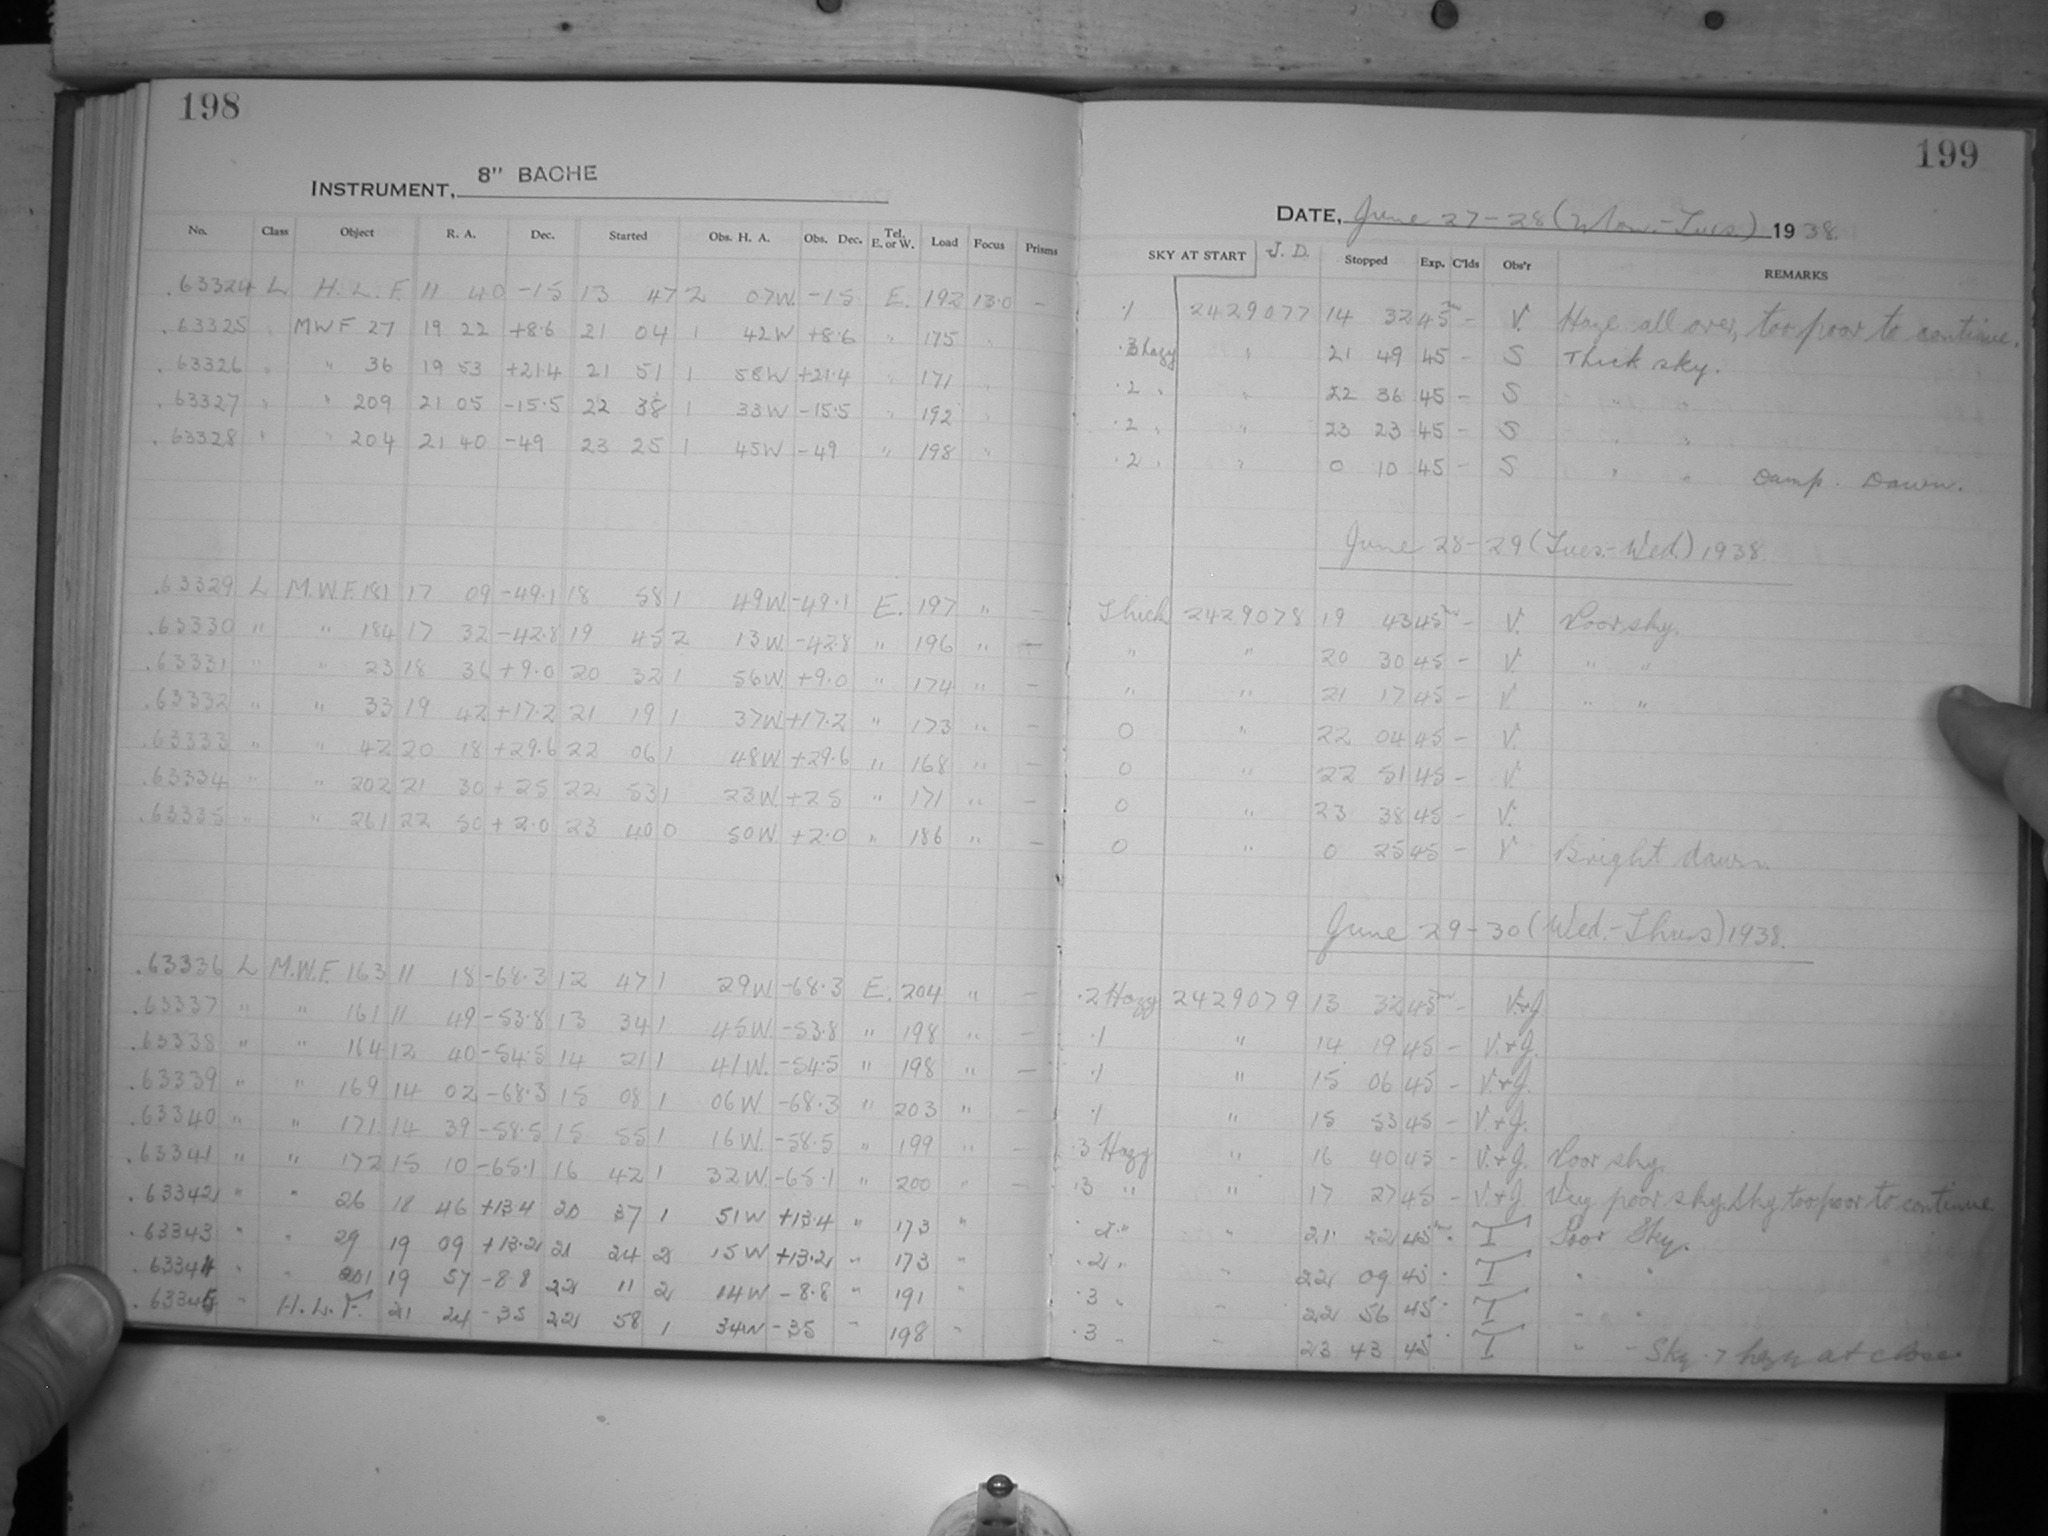 198
INSTRUMENT, 8" BACHE
No. Class Object R. A. Dec. Started Obs. H. A. Obs. Dec. Tel. E. or W. Load Focus Prisms
.63324 L H. L. F. 11 40 -15 13 47 2 07W. -15 E. 192 13.0 -
.63325 " MWF 27 19 22 +8.6 21 04 1 42W +8.6 " 175 "
.63326 " " 36 19 53 +21.4 21 51 1 58W +21.4 " 171 "
.63327 " " 209 21 05 -15.5 22 38 1 33W -15.5 " 192 "
.63328 " " 204 21 40 -49 23 25 1 45W -49 " 198 "
.63329 L M.W.F. 181 17 09 -49.1 18 58 1 49W. -49.1 E. 197 " -
.63330 " " 184 17 32 -42.8 19 45 2 13W. -42.8 " 196 " -
.63331 " " 23 18 36 +9.0 20 32 1 56W. +9.0 " 174 " -
.63332 " " 33 19 42 +17.2 21 19 1 37W +17.2 " 173 " -
.63333 " " 42 20 18 +29.6 22 06 1 48W +29.6 " 168 " -
.63334 " " 202 21 30 +25 22 53 1 23W. +25 " 171 " -
.63335 " " 261 22 50 +2.0 23 40 0 50W. +2.0 " 186 " -
.63336 L M.W.F. 163 11 18 -68.3 12 47 1 29W. -68.3 E. 204 " -
.63337 " " 161 11 49 -53.8 13 34 1 45W. -53.8 " 198 " -
.63338 " " 164 12 40 -54.5 14 21 1 41W. -54.5 " 198 " -
.63339 " " 169 14 02 -68.3 15 08 1 06W -68.3 " 203 " -
.63340 " " 171 14 39 -58.5 15 55 1 16W. -58.5 " 199 " -
.63341 " " 172 15 10 -65.1 16 42 1 32W. -65.1 " 200 " -
.63342 " " 26 18 46 +13.4 20 37 1 51W +13.4 " 173 "
.63343 " " 29 19 09 +13.2 21 24 2 15W +13.2 " 173 "
.63344 " " 201 19 57 -8.8 22 11 2 14W -8.8 " 191 "
.63345 " H. L. F. 21 24 -35 22 58 1 34W -35 " 198 "
199
DATE, June 27-28 (Mon.-Tues) 1938.
SKY AT START J. D. Stopped Exp. C'lds Obs'r REMARKS
.1 2429077 14 32 45m - V. Haze all over, too poor to continue.
.3 hazy " 21 49 45 - S Thick sky.
.2 " " 22 36 45 - S " "
.2 " " 23 23 45 - S " "
.2 " " 0 10 45 - S " " Damp. Dawn.
June 28-29 (Tues.-Wed.) 1938.
Thick 2429078 19 43 45m - V. Poor sky.
" " 20 30 45 - V. " "
" " 21 17 45 - V. " "
0 " 22 04 45 - V.
0 " 22 51 45 - V.
0 " 23 38 45 - V.
0 " 0 25 45 - V Bright dawn.
June 29-30 (Wed.-Thurs) 1938.
.2 Hazy 2429079 13 32 45m - V.+J.
.1 " 14 19 45 - V.+J.
.1 " 15 06 45 - V.+J.
.1 " 15 53 45 - V.+J.
.3 Hazy " 16 40 45 - V.+J. Poor sky.
.3 " " 17 27 45 - V.+J. Very poor sky. Sky too poor to continue
.2 " " 21 22 45m - I Poor Sky.
.2 " " 22 09 45 - I " "
.3 " " 22 56 45 - I " "
.3 " " 23 43 45 - I " " Sky .7 hazy at close.